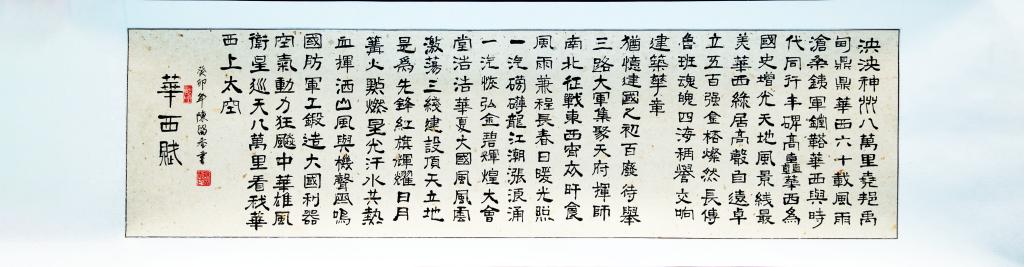 泱泱神州八萬里堯禹
甸鼎鼎華西六十載風雨
滄桑鐵軍鏗華西與時
代同行丰碑高矗華西為
國史增光天地風景線最
美華西綠居高聲自遠卓
立五百强金榜燦然長傳
魯班魂魄四海稱譽交响
建築華章
猶憶建國之初百廢待舉
三路大軍集聚天府揮師
南北征戰東西宵衣旰食
風雨兼程長春日暖光照
一汽磅礴龍江潮漲浪涌
一汽恢弘金碧輝煌大會
堂浩浩華夏大國風風雷
激蕩三綫建設頂天立地
是為先鋒紅旗輝耀日月
篝火點燃星光汗水共熱
血揮洒山風與機聲鳴
國防軍工鍛造大國利器
空氣動力狂飈中華雄風
衛星巡天八萬里看我華
西上太空
癸卯年陳書
華西賦